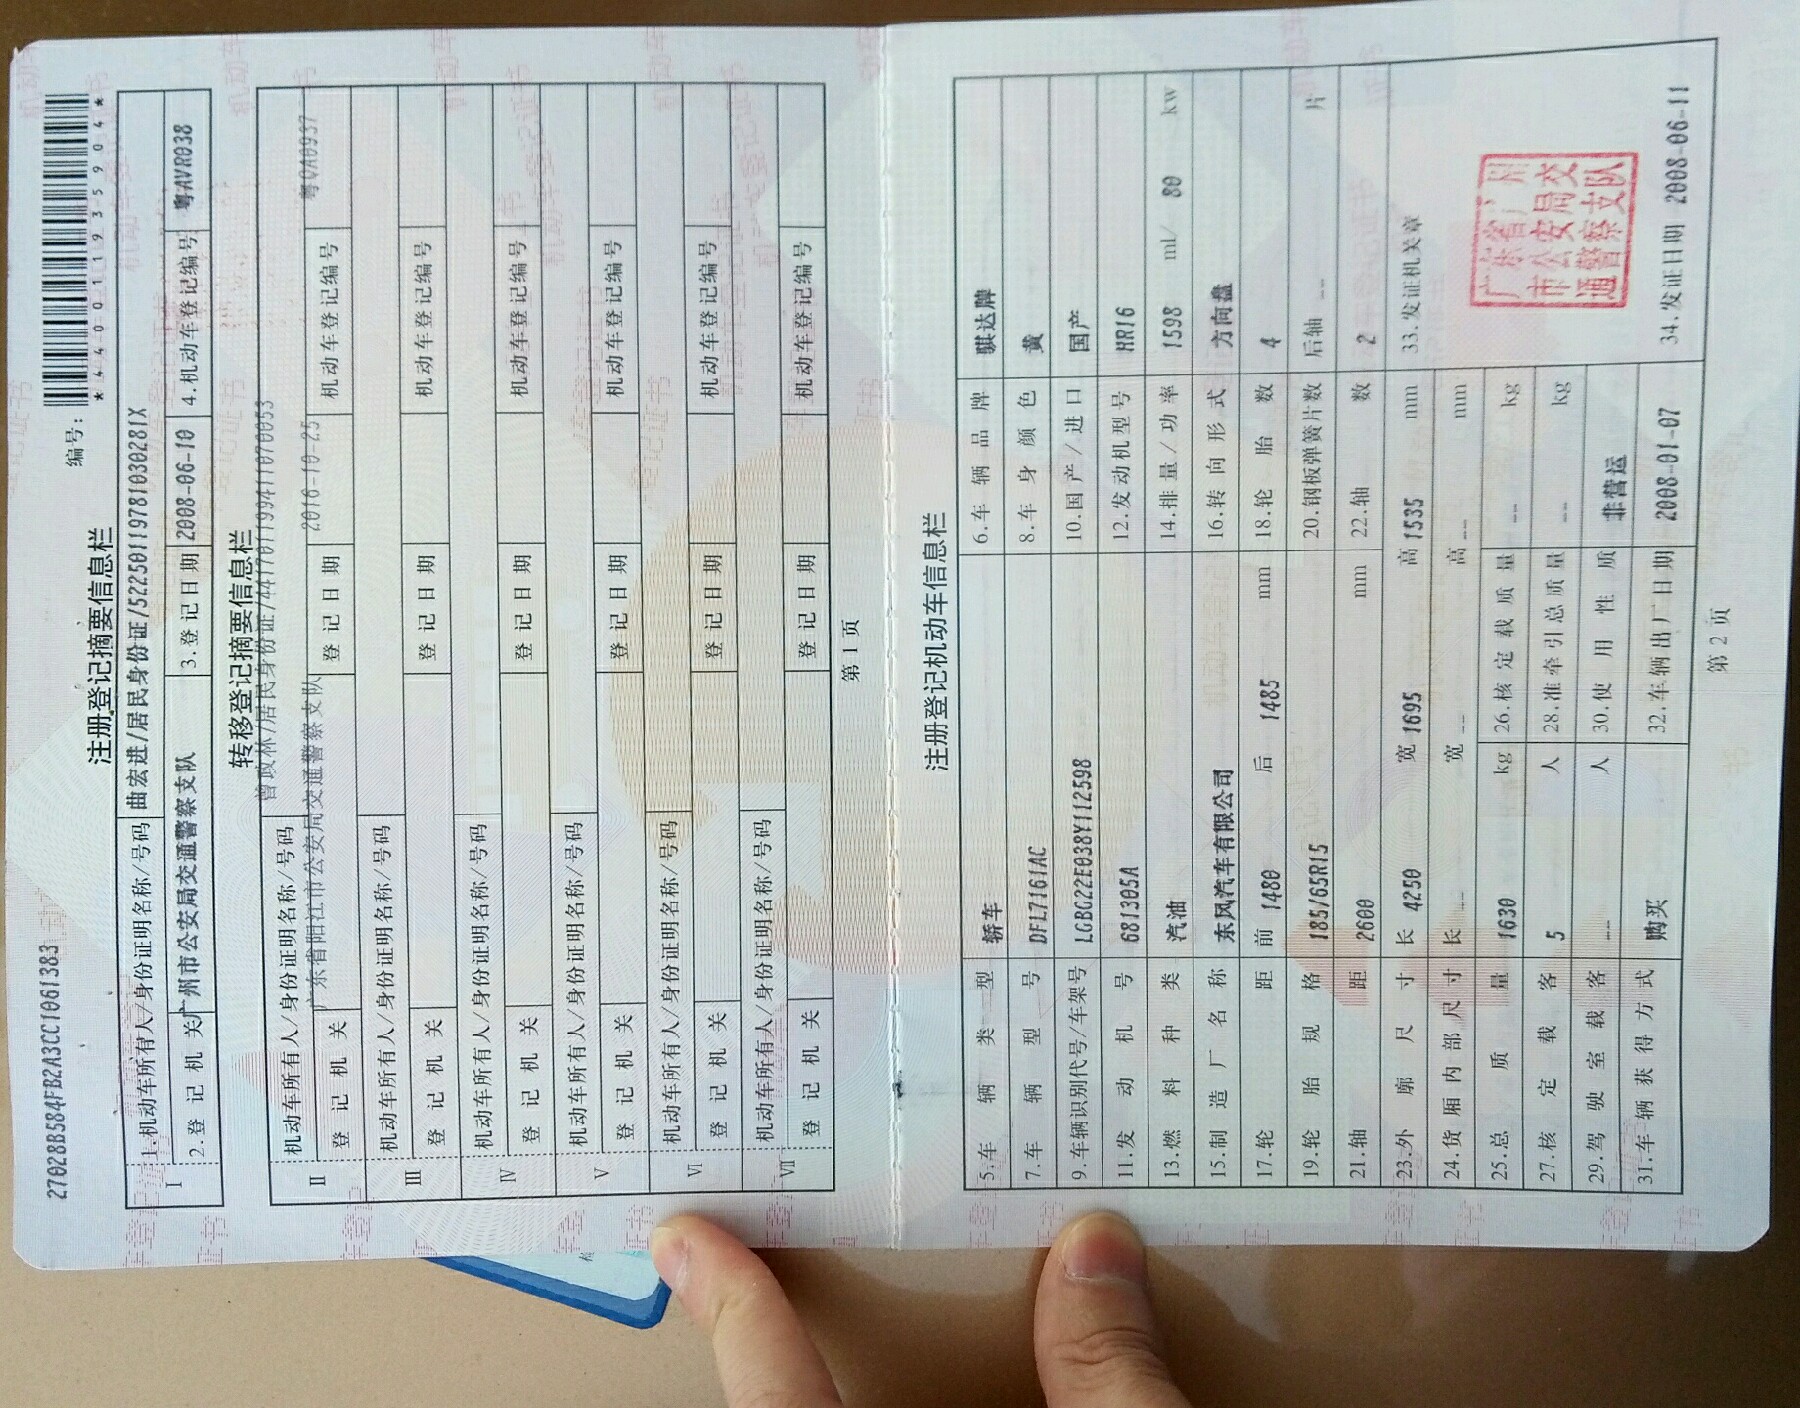 2702BB584FB2A3CC1061383
编号:
*440011935904*
注册登记摘要信息栏
Ⅰ 1.机动车所有人/身份证明名称/号码 曲宏进/居民身份证/52250119781030281X
2.登记机关 广州市公安局交通警察支队 3.登记日期 2008-06-10 4.机动车登记编号 粤AVR038
转移登记摘要信息栏
Ⅱ 机动车所有人/身份证明名称/号码 曾政林/居民身份证/441701199411070053
登记机关 广东省阳江市公安局交通警察支队 登记日期 2016-10-25 机动车登记编号 粤QA0937
Ⅲ 机动车所有人/身份证明名称/号码
登记机关 登记日期 机动车登记编号
Ⅳ 机动车所有人/身份证明名称/号码
登记机关 登记日期 机动车登记编号
Ⅴ 机动车所有人/身份证明名称/号码
登记机关 登记日期 机动车登记编号
Ⅵ 机动车所有人/身份证明名称/号码
登记机关 登记日期 机动车登记编号
Ⅶ 机动车所有人/身份证明名称/号码
登记机关 登记日期 机动车登记编号
第1页
注册登记机动车信息栏
5.车辆类型 轿车 6.车辆品牌 骐达牌
7.车辆型号 DFL7161AC 8.车身颜色 黄
9.车辆识别代号/车架号 LGBG22E038Y112598 10.国产/进口 国产
11.发动机号 681305A 12.发动机型号 HR16
13.燃料种类 汽油 14.排量/功率 1598 ml/ 80 kw
15.制造厂名称 东风汽车有限公司 16.转向形式 方向盘
17.轮距 前 1480 后 1485 mm 18.轮胎数 4
19.轮胎规格 185/65R15 20.钢板弹簧片数 后轴 -- 片
21.轴距 2600 mm 22.轴数 2
23.外廓尺寸 长 4250 宽 1695 高 1535 mm 33.发证机关章
24.货厢内部尺寸 长 -- 宽 -- 高 -- mm
25.总质量 1630 kg 26.核定载质量 -- kg
27.核定载客 5 人 28.准牵引总质量 -- kg
29.驾驶室载客 -- 人 30.使用性质 非营运
31.车辆获得方式 购买 32.车辆出厂日期 2008-01-07 34.发证日期 2008-06-11
广东省广州
市公安局交
通警察支队
第2页